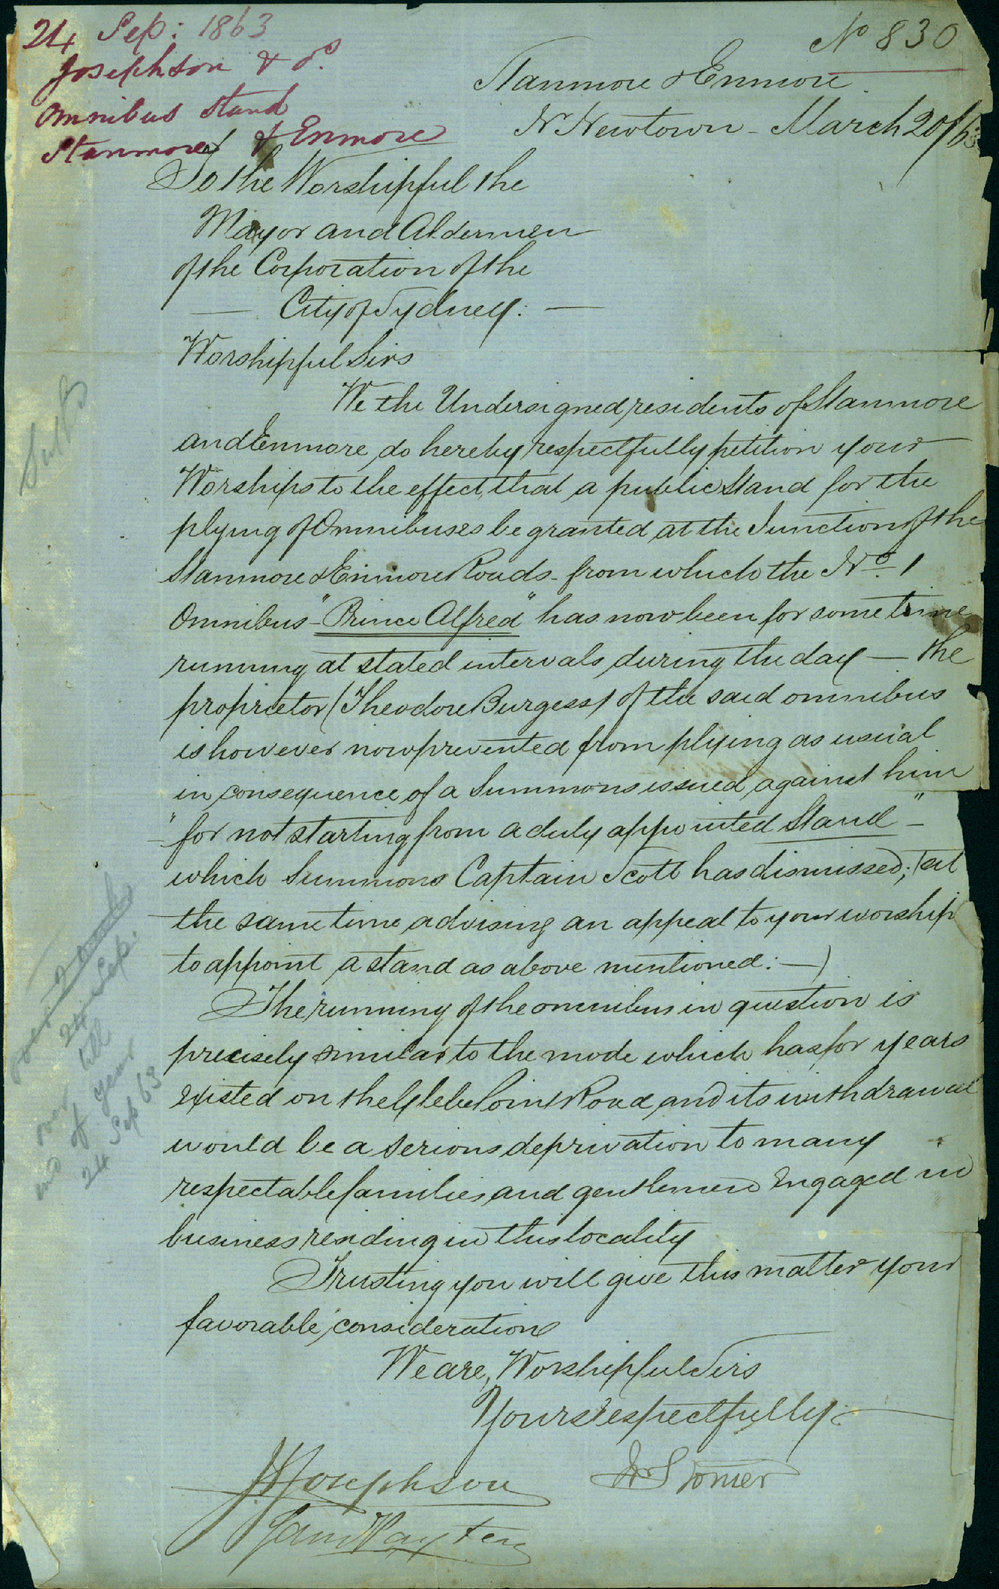 24 Sep: 1863
Josephson & os
Omnibus Stand
Stanmore & Enmore
No 830
Stanmore & Enmore
Nr Newtown - March 20/63
To the Worshipful the
Mayor and Aldermen
of the Corporation of the
— City of Sydney: —
Worshipful Sirs
We the Undersigned, residents of Stanmore
and Enmore, do hereby respectfully petition your
Worships to the effect, that a public Stand for the
plying of Omnibuses be granted at the Junction of the
Stanmore & Enmore Roads - from which the No. 1
Omnibus - "Prince Alfred" has now been for some time
running at stated intervals, during the day — the
proprietor (Theodore Burgess) of the said omnibus
is however now prevented from plying as usual
in consequence of a Summons issued against him
"for not starting from a duly appointed Stand" -
which Summons Captain Scott has dismissed; (at
the same time advising an appeal to your worship
to appoint a stand as above mentioned: —)
The running of the omnibus in question is
precisely similar to the mode which has for years
existed on the Glebe Point Road, and its withdrawal
would be a serious deprivation to many
respectable families, and gentlemen engaged in
business residing in this locality
Trusting you will give this matter your
favorable consideration
We are, Worshipful Sirs
Yours respectfully
Josephson
24 Sep:
over till
of year
24 Sep 63